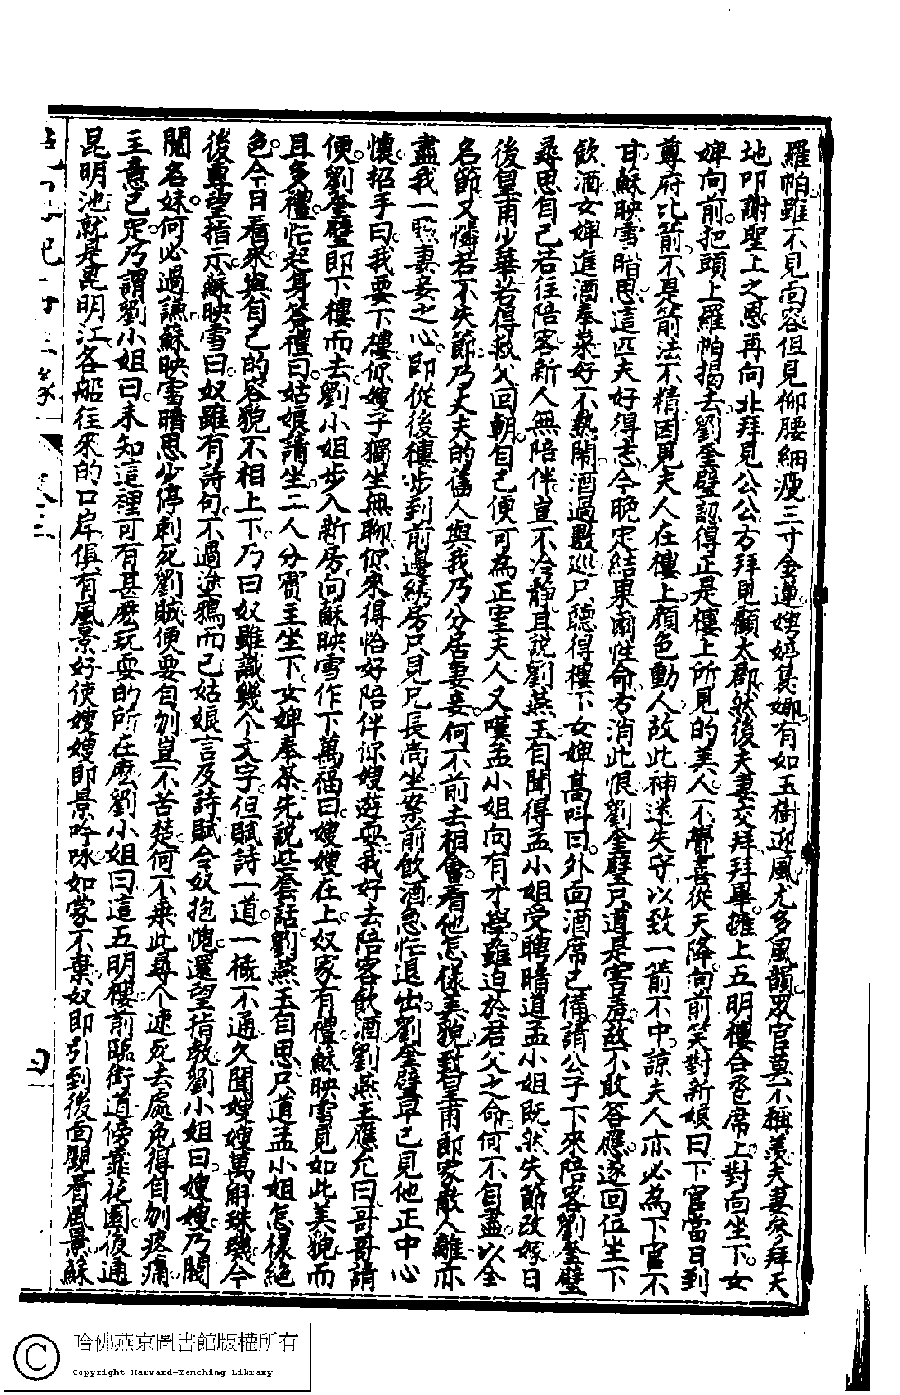 羅帕雖不見面容但見仰腰細瘦三寸金蓮娉婷甚娜有如玉樹迎風尤多風韻眾官莫不稱羨夫妻參拜天
地叩謝聖上之恩再向北拜見公公方拜見顧太郡然後夫妻交拜拜畢擁上五明樓合卺席上對面坐下女
婢向前把頭上羅帕揭去劉奎璧認得正是樓上所見的美人不覺喜從天降向前笑對新娘曰下官當日到
尊府比箭不是箭法不精因見夫人在樓上顏色動人故此神迷失守以致一箭不中諒夫人亦必為下官不
甘蘇映雪暗思這匹夫好得志今晚定結果爾性命方消此恨劉奎璧只道是害羞故不敢答應遂回位坐下
飲酒女婢進酒奉菜好不熱鬧酒過數巡只聽得樓下女婢高叫曰外面酒席已備請公子下來陪客劉奎璧
尋思自己若往陪客新人無陪伴豈不冷靜且說劉燕玉自聞得孟小姐受聘暗道孟小姐既然失節改嫁日
後皇甫少華若得救父回朝自己便可為正室夫人又嘆孟小姐向有才學雖迫於君父之命何不自盡以全
名節又憐若不失節乃丈夫的舊人與我乃分居妻妾何不前去相會看他怎樣美貌致皇甫郎家散人離亦
盡我一點妻妾之心即從後樓步到前邊繡房只見兄長尚坐案前飲酒急忙退出劉奎璧早已見他正中心
懷招手曰我要下樓你嫂子獨坐無聊你來得恰好陪伴你嫂遊耍我好去陪客飲酒劉燕玉應允曰哥哥請
便劉奎璧即下樓而去劉小姐步入新房向蘇映雪作下萬福曰嫂嫂在上奴家有禮蘇映雪見如此美貌而
且多禮忙起身答禮曰姑娘請坐二人分賓主坐下女婢奉茶先說些套話劉燕玉自思只道孟小姐怎樣絕
色今日看來與自己的容貌不相上下乃曰奴雖識幾个文字但賦詩一道一概不通久聞嫂嫂萬斛珠璣今
後專望指示蘇映雪曰奴雖有詩句不過塗鴉而已姑娘言及詩賦令奴抱愧還望指教劉小姐曰嫂嫂乃閨
閣名妹何必過謙蘇映雪暗思少停刺死劉賊便要自刎豈不苦楚何不乘此尋个速死去處免得自刎疼痛
主意已定乃謂劉小姐曰未知這裡可有甚麼玩耍的所在麼劉小姐曰這五明樓前臨街道傍靠花園後通
昆明池就是昆明江各船往來的口岸俱有風景好使嫂嫂即景吟咏如蒙不棄奴即引到後面觀看風景蘇
哈佛燕京圖書館版權所有
Copyright Harvard-Yenching Library